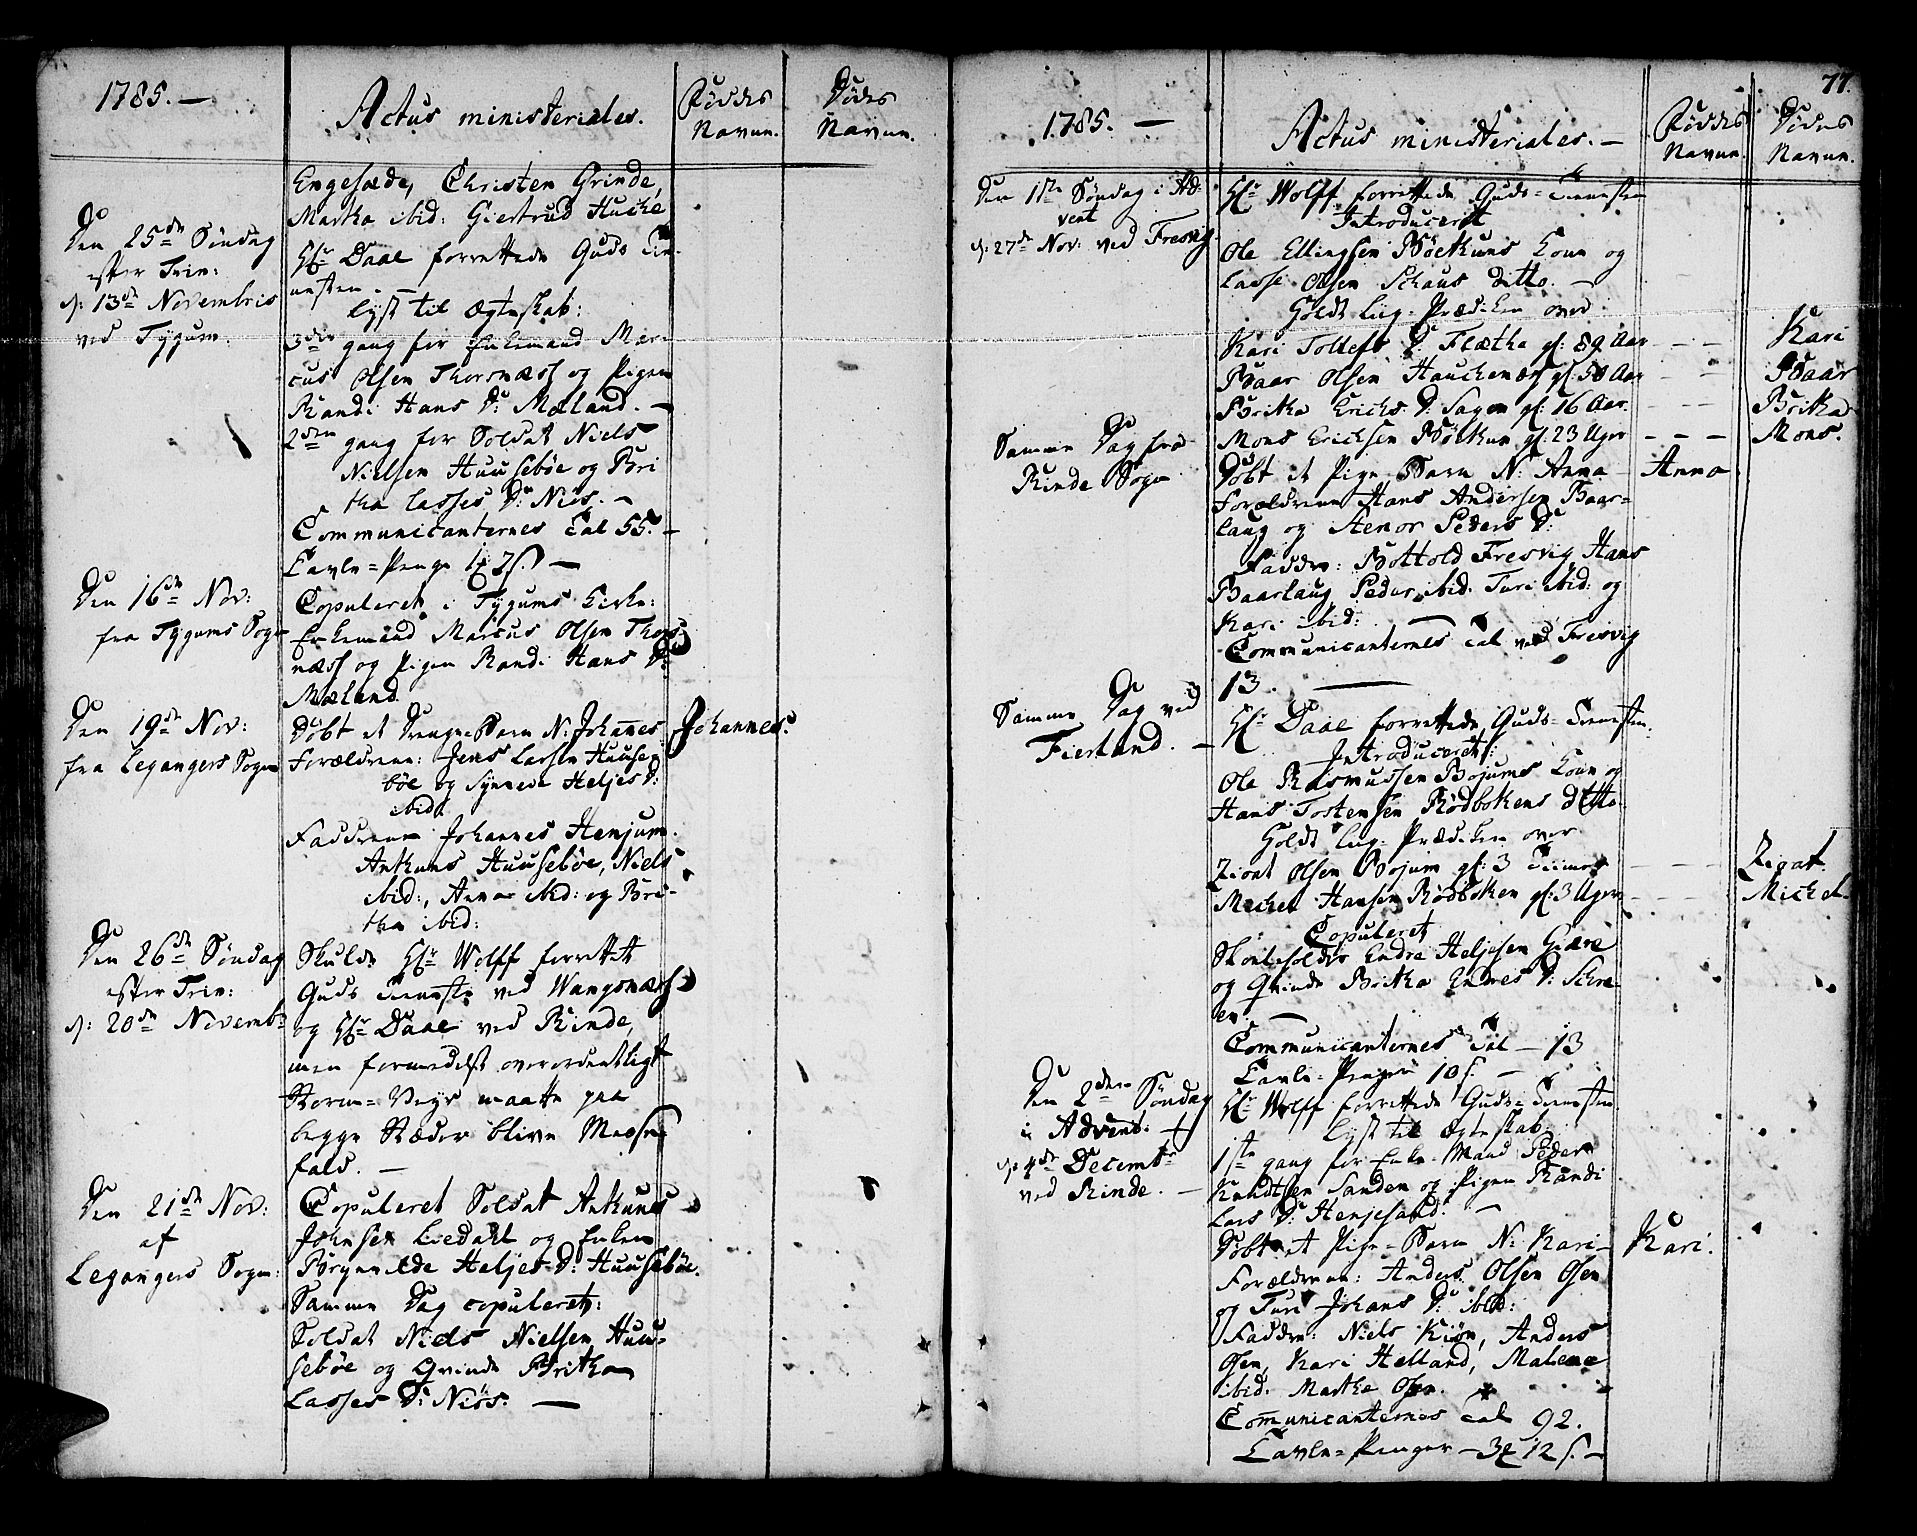 1785. —
Actus ministeriales.
Fødde Navne.
Døde Navne.
Engesæde, Christen Grinde,
Martha ibid: Giertrud Huche
Den 25de Søndag
efter Trin:
d: 13de Novembris
ved Tygum.
Hr Daae forrettede Guds Tie-
nesten. —
lyst til Ægteskab:
3die gang for Enkemand Mar-
cus Olsen Thorsnæss og Pigen
Randi Hans D: Mæland. —
2den gang for Soldat Niels
Nielsen Huusebøe og Bri
tha Lasses D: Niøs. —
Communicanternes Tal 55. —
Tavle-Penge 1# 7s. —
Den 16de Nov:
fra Tygums Sogn
Copuleret i Tygums Kirke:
Enkemand Marcus Olsen Thors-
næss og Pigen Randi Hans D:
Mæland.
Den 19de Nov:
fra Legangers Sogn
Døbt et Drenge-Barn N: Johanes
Johannes.
Forældrene: Jens Larsen Huuse-
bøe og Synneve Heljes D:
ibid:
Faddrene Johannes Henjum.
Ankuns Huusebøe, Niels
ibid:, Anna ibid: og Bri-
tha ibid:
Den 26de Søndag
efter Trin:
d: 20de Novemb:
Skulde Hr Wolff forrettet
Guds Tieneste ved Wangsnæss
og Hr Daae ved Rinde,
men formedelst overordentligt
Storm-Veyr maatte paa
begge Stæder blive Messe-
fald. —
Den 21de Nov:
af
Legangers Sogn:
Copuleret Soldat Ankuns
Johnsen Liedahl og Enken
Brynilde Heljes D: Huusebøe.
Samme Dag copuleret:
Soldat Niels Nielsen Huu-
sebøe og Qvinde Britha
Lasses D: Niøs. —
77.
1785. —
Actus ministeriales. —
Fødde Navne.
Døde Navne.
Den 1ste Søndag i Ad-
vent
d: 27de Nov: ved Fresvig
Hr Wolff forrettede Guds-Tienesten
Introduceret
Ole Ellingsen Bøetuns Kone og
Lasse Olsen Schaus ditto. —
Holdt Lig-Prædiken over
Kari Tollefs D: Flæthe gl: 89 Aar — — Kari
Baar Olsen Hauchenæs gl: 50 Aar — — Baar
Britha Erichs D: Sagen gl: 16 Aar. — — Britha
Mons Erichsen Bøetun gl: 23 Uger — — — Mons.
Samme Dag fra
Rinde Sogn
Døbt et Pige-Barn N: Anna
Anna
Forældrene Hans Andersen Baar-
laug og Aenor Peders D:
Faddre: Bottold Fresvig, Hans
Baarlaug, Peder ibid: Turi ibid: og
Kari ibid: —
Communicanternes Tal ved Fresvig
13. —
Samme Dag ved
Fierland. —
Hr Daae forrettede Guds-Tienesten.
Introduceret:
Ole Rasmussen Bojums Kone og
Hans Tostensen Rødbøkens ditto
Holdt Lig-Prædiken over
Zigat Olsen Bojum gl: 3 Tiimer — — — Zigat.
Michel Hansen Rødboken gl: 3 Uger — — — Michel.
Copuleret
Endre Heljesen Giære
og Qvinde Britha Endres D: Skre-
en. —
Communicanternes Tal — 13
Tavle-Penger 10 s. —
Den 2den Søndag
i Advent:
d: 4de Decembr
ved Rinde. —
Hr Wolff forrettede Guds-Tienesten
lyst til Ægteskab
1ste gang for Enke-Mand Peder
Knudtsen Sanden og Pigen Randi
Lars D: Henjesand. —
Døbt et Pige-Barn N: Kari —
Kari.
Forældrene: Anders Olsen Osen
og Turi Johans D: ibid:
Faddre: Niels Kiøn, Anders
Osen, Kari Helland, Malene
ibid: Martha Osen.
Com̄unicanternes Tal 92.
Tavle-Penger — 3# 12 s. —